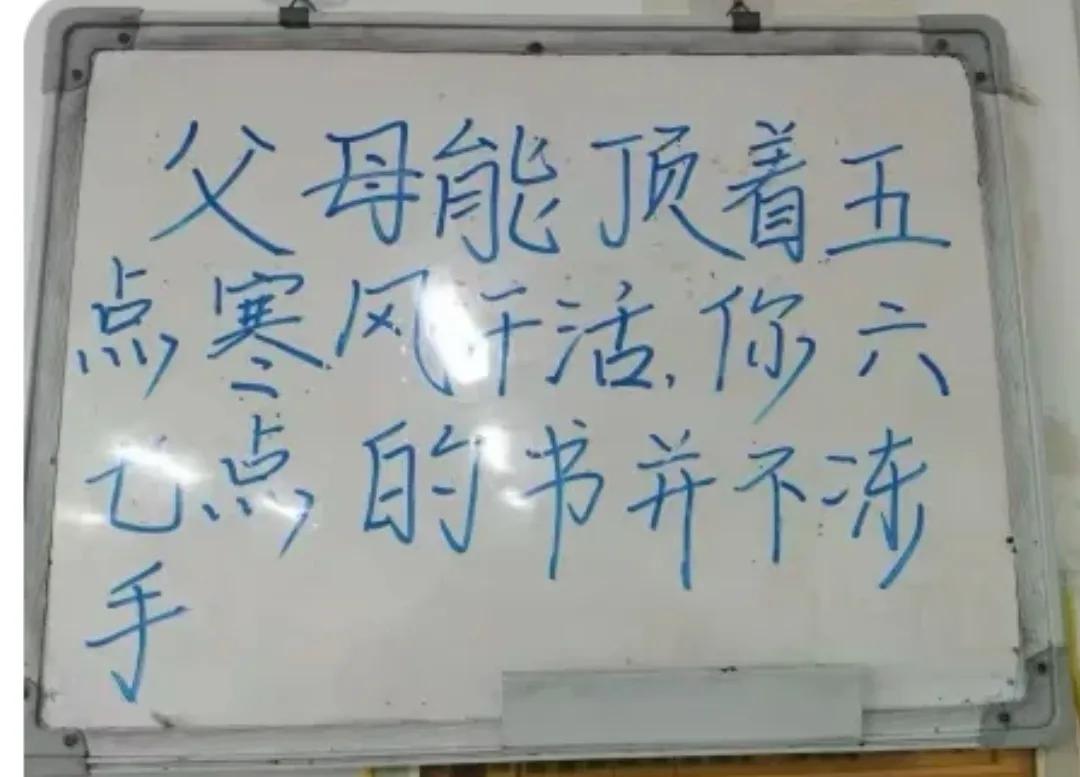 父母能顶着五
点寒风干活,你六
七点的书并不冻
手